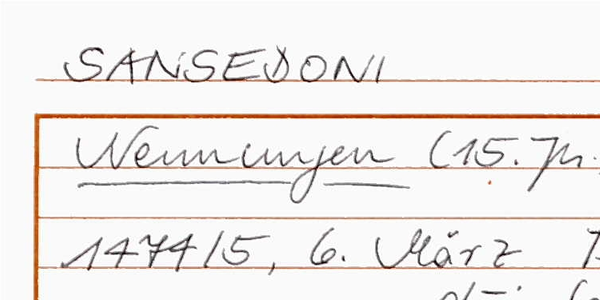 SANSEDONI
Nennungen (15. Jh.
1474/5, 6. März